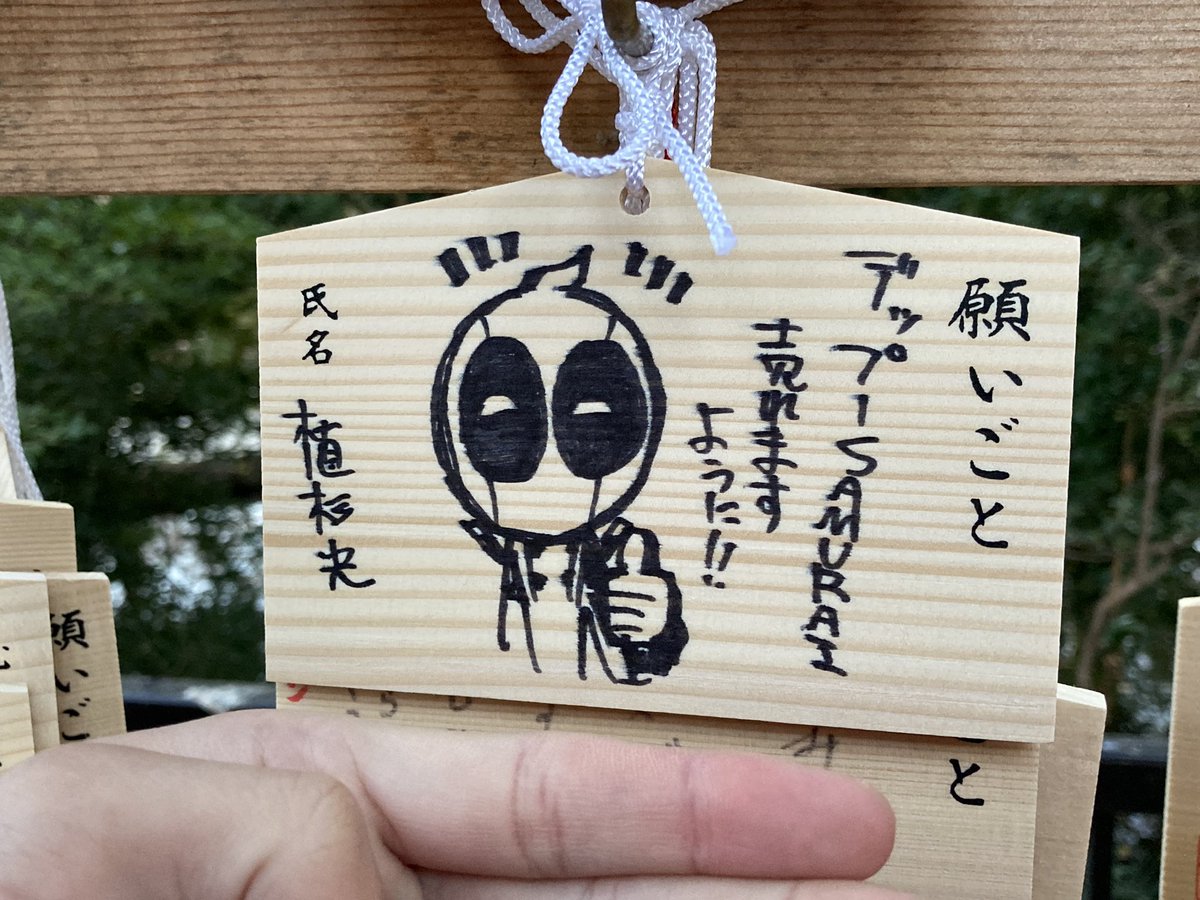 願いごと
デップーSAMURAI
売れます
ように!!
氏名
植杉光
願いご
と